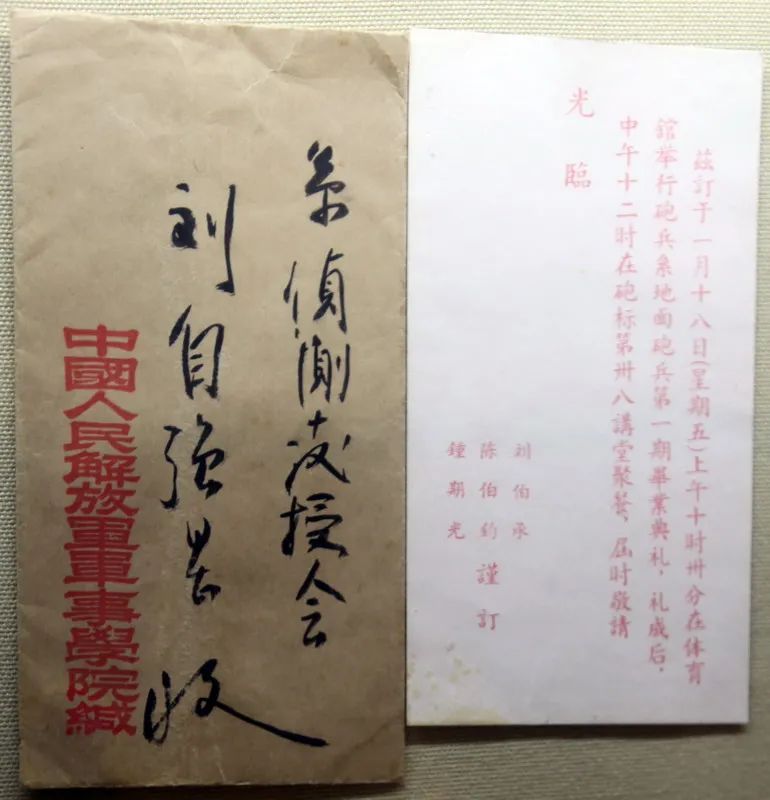 系偵測教授会
刘自强收
中國人民解放軍軍事學院緘
茲訂于一月十八日(星期五)上午十时卅分在体育
舘举行砲兵系地面砲兵第一期畢業典礼，礼成后，
中午十二时在砲标第卅八講堂聚餐、届时敬請
光臨
刘伯承
陈伯钧 謹訂
鍾期光